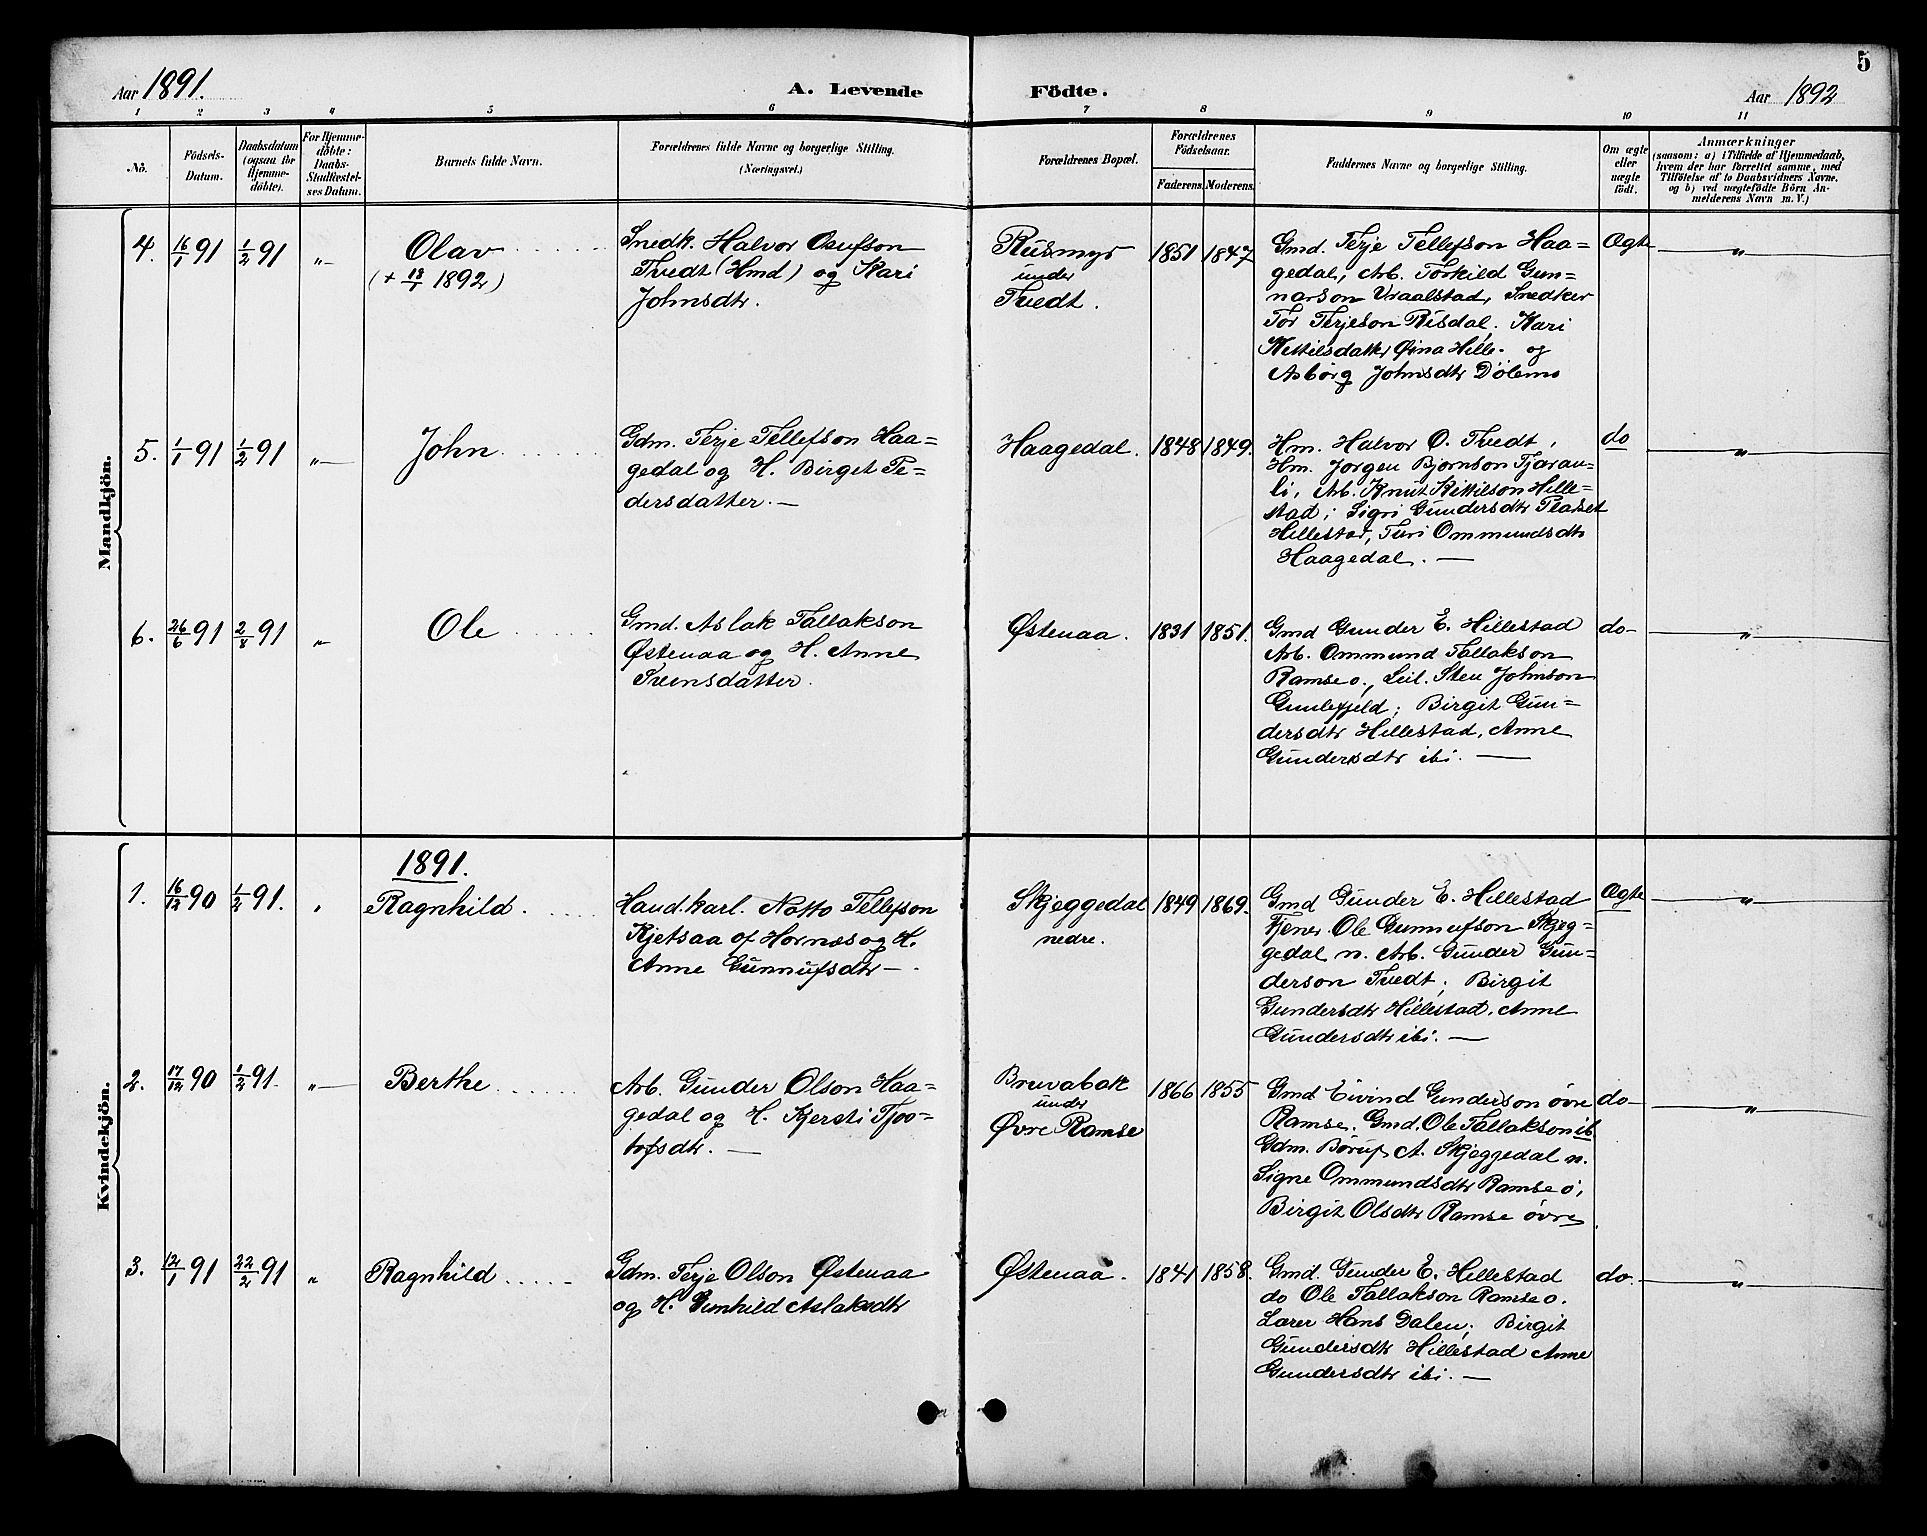 5
Aar 1891.
A. Levende
Födte.
Aar 1892
1 2 3 4 5 6 7 8 9 10 11
No.
Födsels-
Datum.
Daabsdatum
(ogsaa for
Hjemme-
döbte).
For Hjemme-
döbte:
Daabs-
Stadfæstel-
ses Datum.
Barnets fulde Navn.
Forældrenes fulde Navne og borgerlige Stilling.
(Næringsvei.)
Forældrenes Bopæl.
Forældrenes
Födselsaar.
Faderens. Moderens.
Faddernes Navne og borgerlige Stilling.
Om ægte
eller
uægte
födt.
Anmærkninger
(saasom: a) i Tilfælde af Hjemmedaab,
hvem der har forrettet samme, med
Tilföielse af to Daabsvidners Navne,
og b) ved uægtefödte Börn An-
melderens Navn m. V.)
Mandkjön.
4. 16/1 91 1/2 91 "—
Olav
(+ 13/1 1892)
Snedk. Halvor Osufson
Tvedt (Hmd) og Kari
Johnsdtr.
Rusmyr
under
Tvedt.
1851 1847
Gmd. Terje Tellefson Haa=
gedal, Arb. Torkild Gun=
narson Vraalstad, Snedker
Tor Terjeson Risdal, Kari
Kettilsdatter Øina Hille- og
Asbörg Johnsdtr Dölemo
Ægte
—"—
5. 1/1 91 1/2 91 "—
John
Gdm. Terje Tellefson Haa=
gedal og H. Birget Pe=
dersdatter. —
Haagedal.
1848 1849.
Hm. Halvor O. Tvedt,
Hm. Jorgen Bjornson Tjaran=
li, Arb. Knut Kittilson Hille=
stad; Sigri Gundersdtr Pladset
Hillestad, Turi Ommundsdtr
Haagedal. —
do
—"—
6. 26/6 91 2/8 91 "—
Ole
Gmd. Aslak Tallakson
Østenaa og H. Anne
Sveinsdatter.
Østenaa.
1831 1851.
Gmd Gunder E. Hillestad
Arb. Ommund Tallakson
Ramse o., Leil. Sten Johnson
Gunlefjeld; Birgit Gun=
dersdtr Hillestad, Anne
Gundersdtr ibi. —
do-
—"—
Kvindekjön.
1891.
1. 16/12 90 1/2 91. "
Ragnhild.
Hand.karl. Notto Tellefson
Kjetsaa af Hornæs og H.
Anne Gunnufsdtr —.
Skjeggedal
nedre.
1849 1869.
Gmd Gunder E. Hillestad
Tjener Ole Gunnufson Skjeg=
gedal n. Arb. Gunder Gun=
derson Tvedt; Birgit
Gundersdtr Hillestad, Anne
Gundersdtr ibi. —
Ægte
—"—
2. 17/12 90 1/2 91. "—
Berthe
Arb. Gunder Olson Haa=
gedal og H. Kjersti Tjoo=
tofsdtr. —
Bruvabak
under
Øvre Ramse
1866 1855
Gmd Eivind Gunderson övre
Ramse. Gmd. Ole Tallakson ib
Gdm. Börup A. Skjeggedal n.
Signe Ommundsdtr Ramse ö,
Birgit Olsdtr Ramse övre.
do-
—"—
3. 12/1 91 22/2 91 "
Ragnhild
Gdm. Terje Olson Østenaa
og H. Gunhild Aslaksdtr
Østenaa.
1841 1858.
Gmd. Gunder E. Hillestad
do Ole Tallakson Ramse o.
Lærer Hans Dalen; Birgit
Gundersdtr Hillestad Anne
Gundersdtr ibi. —
do.
—"—